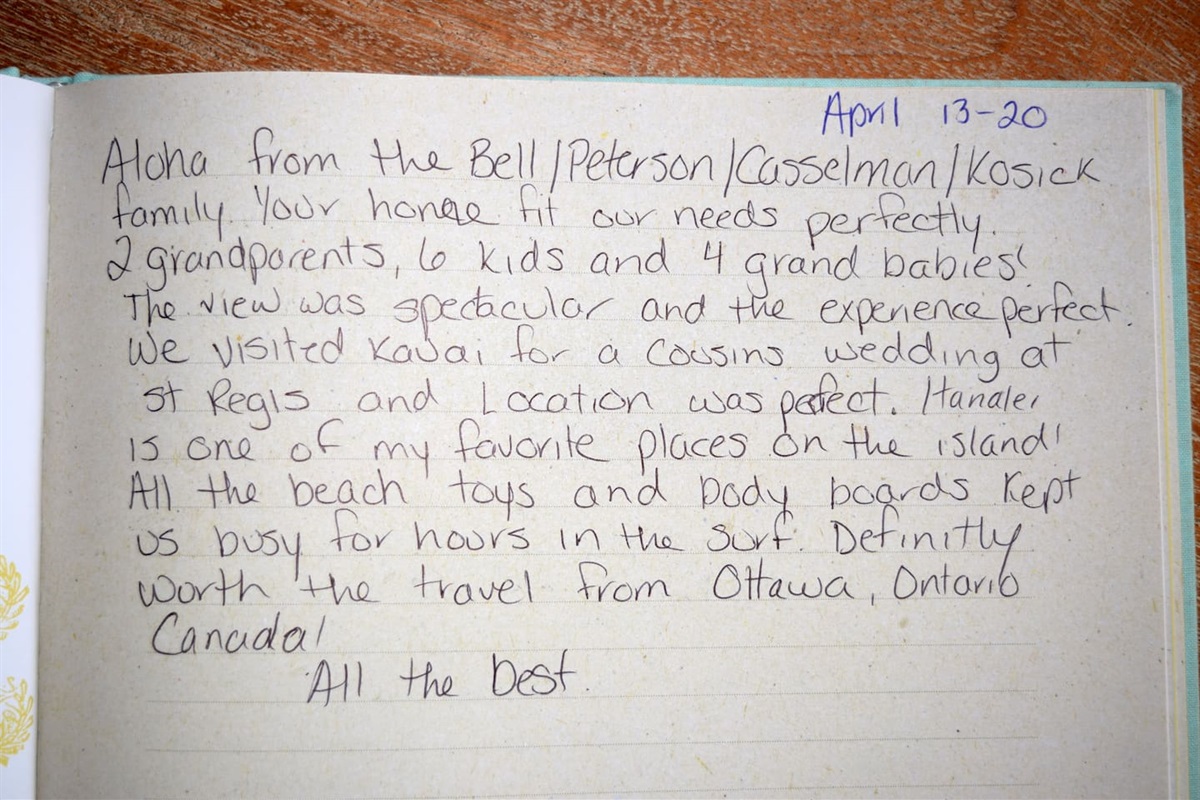 April 13-20
Aloha from the Bell/Peterson/Casselman/Kosick
family. Your home fit our needs perfectly.
2 grandparents, 6 kids and 4 grand babies!
The view was spectacular and the experience perfect.
We visited Kauai for a cousins wedding at
St Regis and Location was perfect. Hanalei
is one of my favorite places on the island!
All the beach toys and body boards kept
us busy for hours in the surf. Definitly
worth the travel from Ottawa, Ontario
Canada!
All the best.